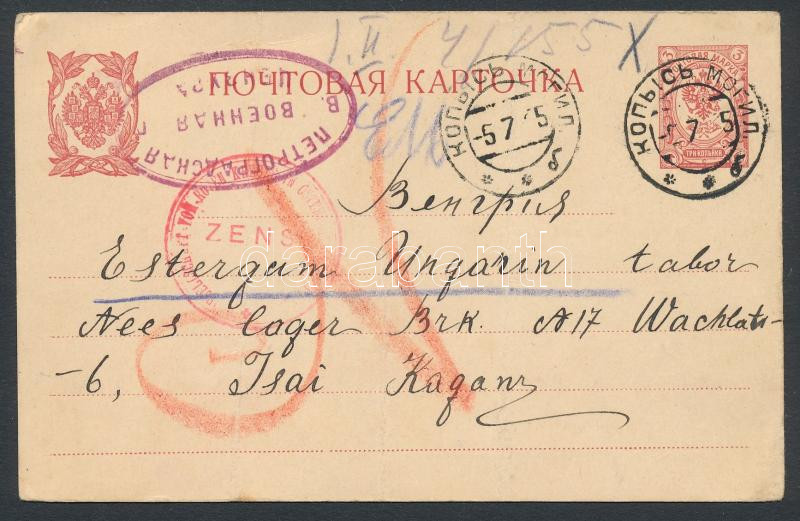 I. II. 4/155 X
ПОЧТОВАЯ КАРТОЧКА
ПЕТРОГРАДСКАЯ
ВОЕННАЯ
КОПЫСЬ МОГИЛ.
-5.7 15
б
КОПЫСЬ МОГИЛ.
7 5
б
3
ТРИ КОПѢЙКИ
ZENS
Венгрия
Estergam Ungarin tabor
Nees lager Brk. A17 Wachlats-
-6, Isai Kaganz
darabanth